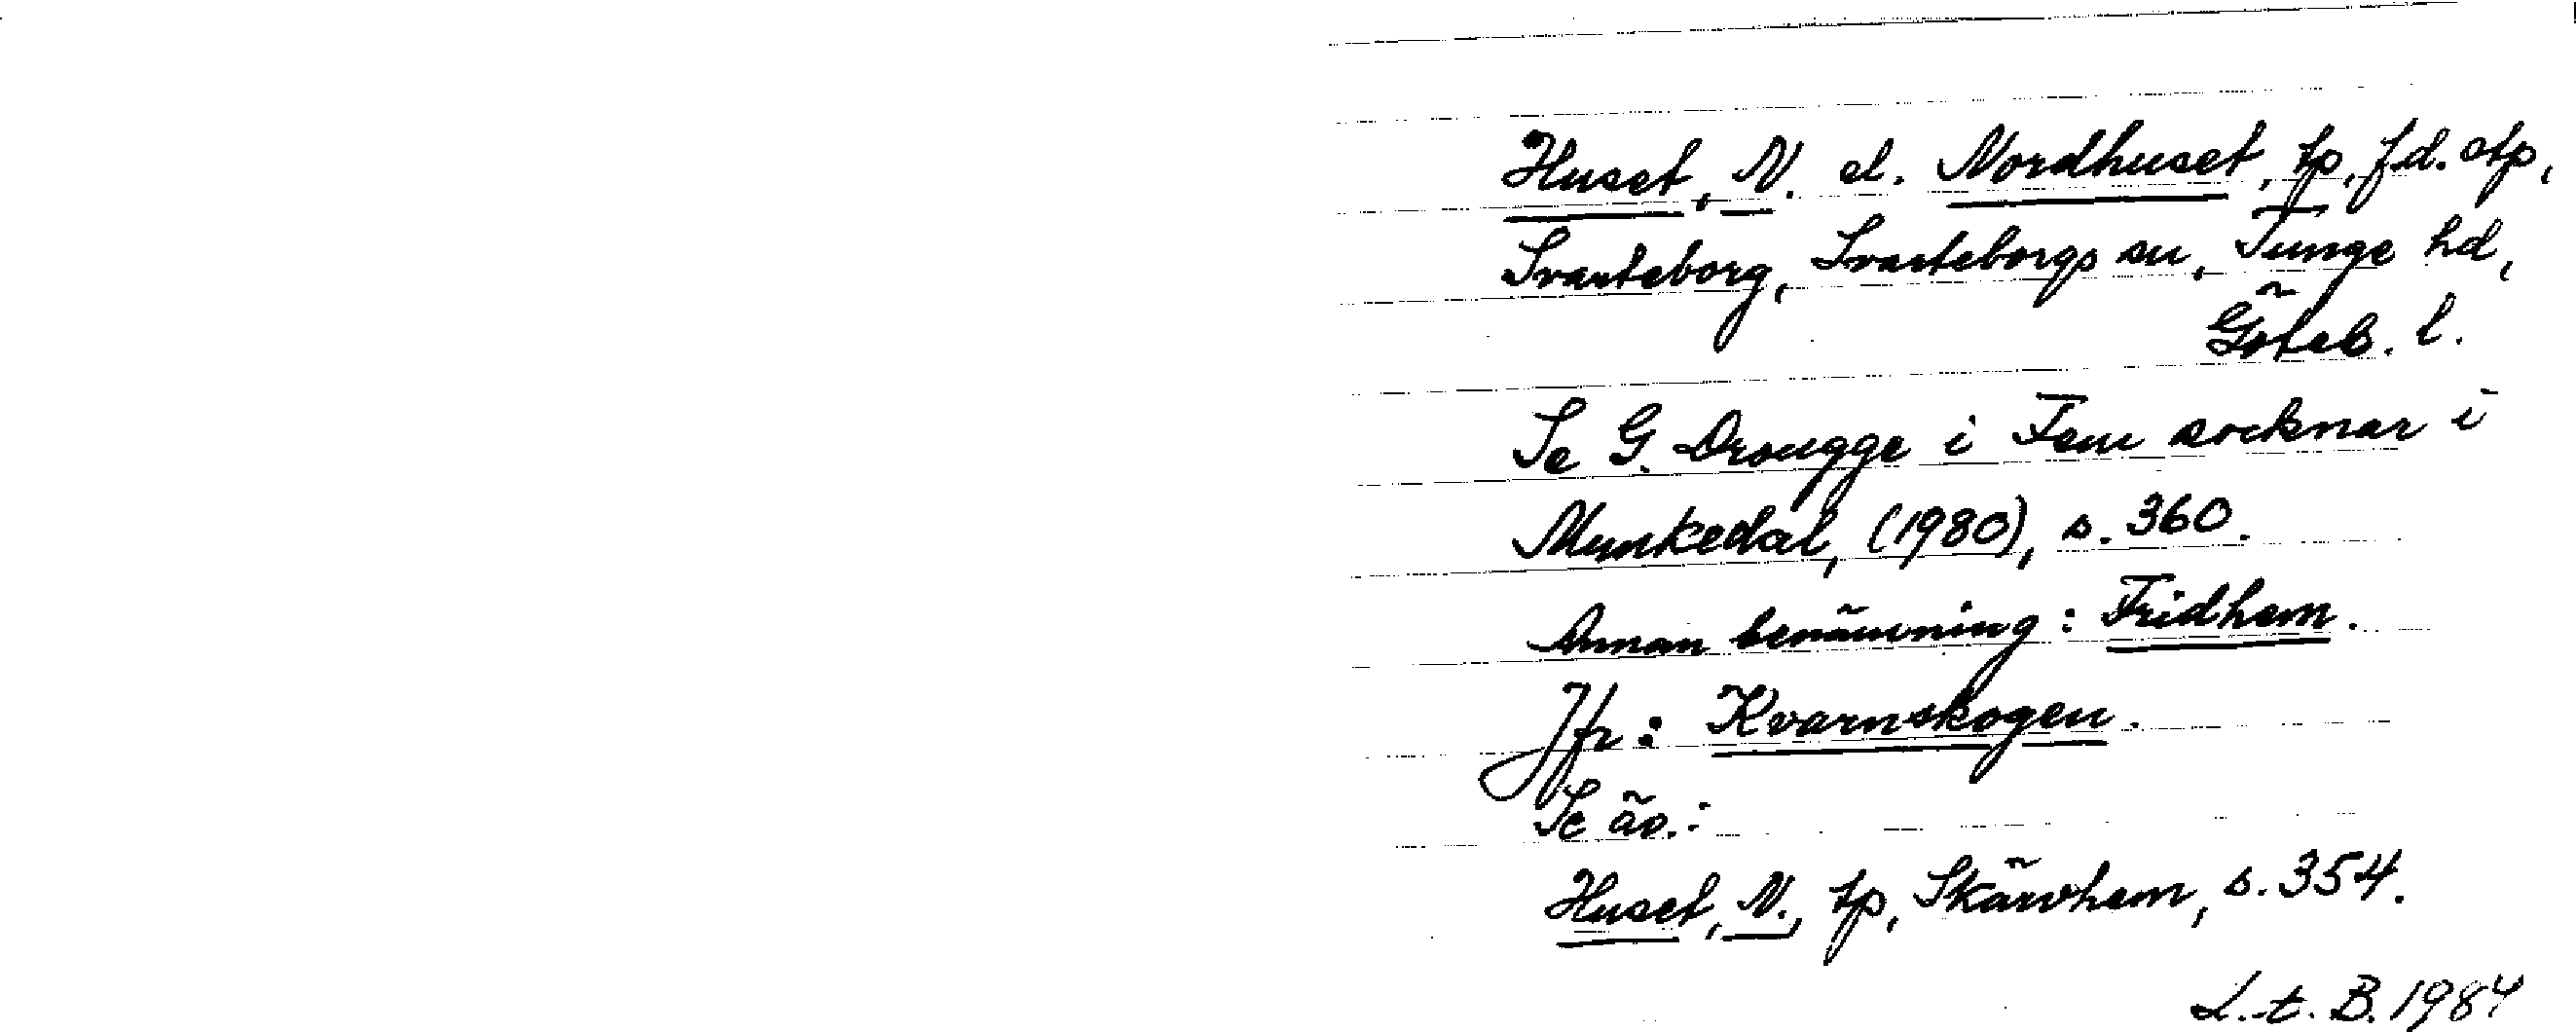 Huset, N. el. Nordhuset, tp, f.d. stp,
Svarteborg, Svarteborgs sn, Tunge hd,
Göteb. l.
Se G. Drougge i Fem socknar i
Munkedal, (1980), s. 360.
Annan benämning: Fridhem.
Jfr: Kvarnskogen.
Se äo.:
Huset, N., tp, Skärvhem, s. 354.
L.t. B. 1984